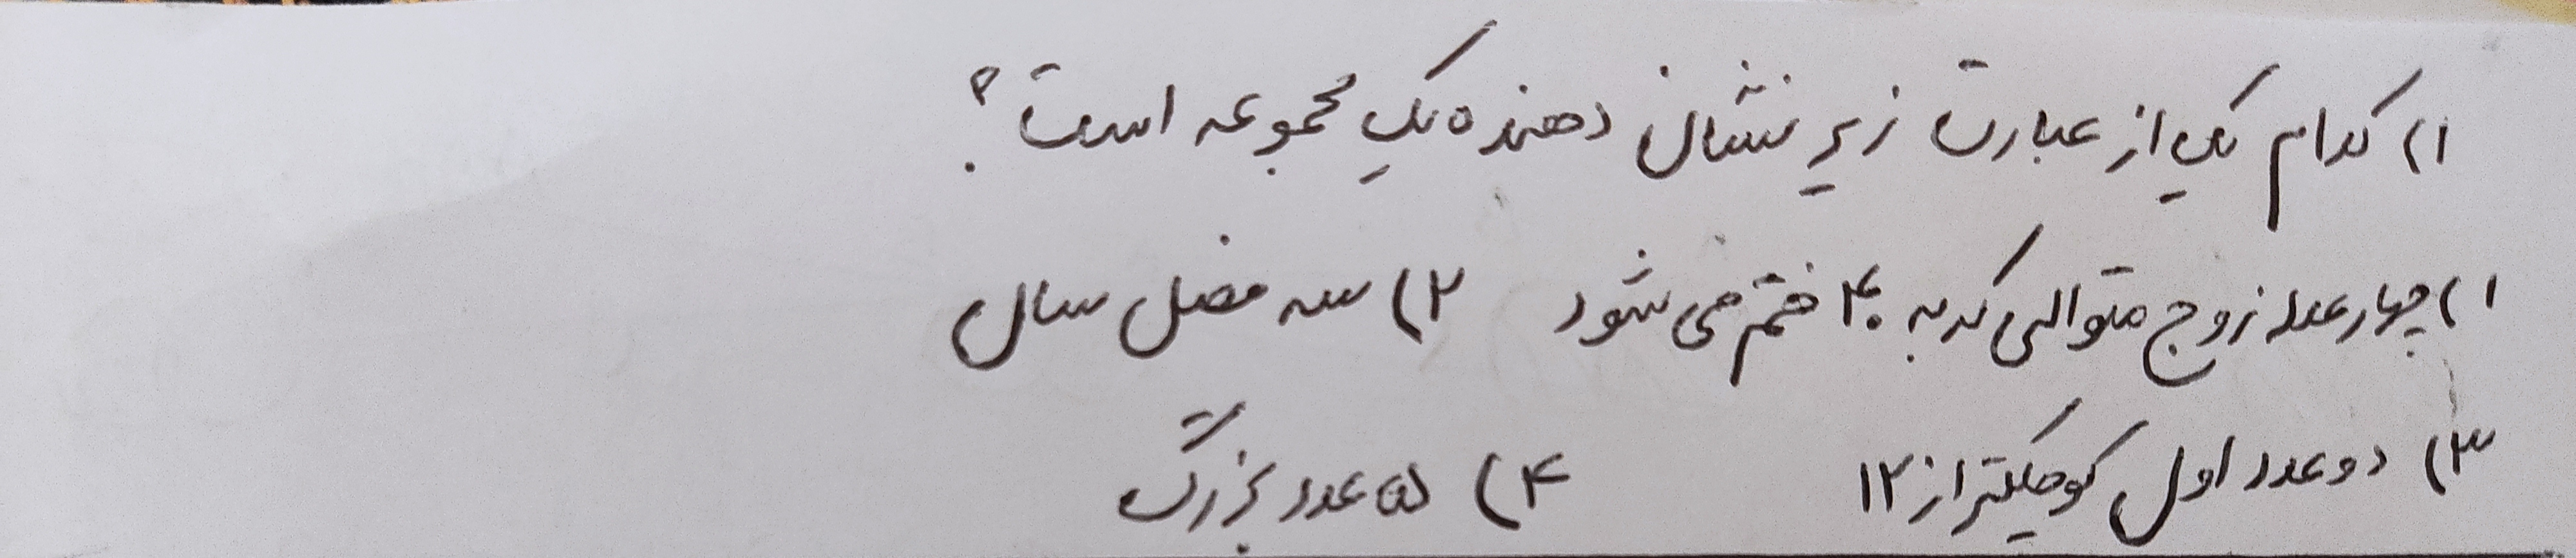 ۱) کدام یک از عبارت زیر نشان دهنده یک مجموعه است؟
۱) چهار عدد زوج متوالی که به ۴۰ ختم می شود ۲) سه فصل سال
۳) دو عدد اول کوچکتر از ۱۲ ۴) ده عدد بزرگ